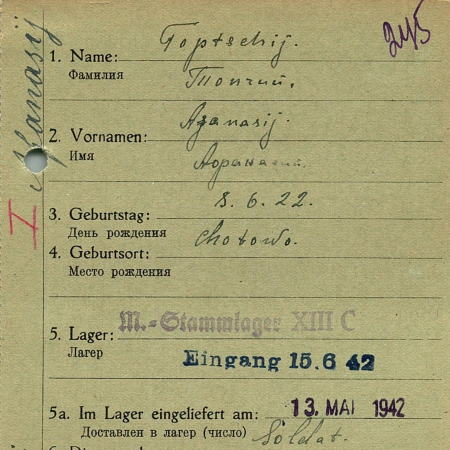 245
Afanasij
I
1. Name: Toptschij.
Фамилия Топчий.
Afanasij.
2. Vornamen:
Имя Афанасий.
8. 6. 22.
3. Geburtstag:
День рождения
Chotowo.
4. Geburtsort:
Место рождения
M.-Stammlager XIII C
5. Lager:
Лагер
Eingang 15.6 42
5a. Im Lager eingeliefert am: 13. MAI 1942
Доставлен в лагер (число) Soldat.